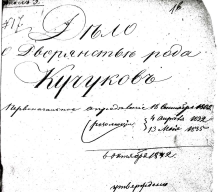 Дѣло
о Дворянствѣ рода
Кучуковъ
Первоначальное опредѣленіе 16 Сентября
4 Апрѣля
13 Мая 1835
6 Октября 1842
утверждено